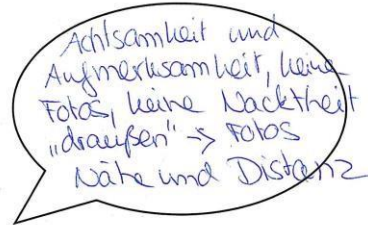 Achtsamkeit und
Aufmerksamkeit, keine
Fotos, keine Nacktheit
„draußen" -> Fotos
Nähe und Distanz